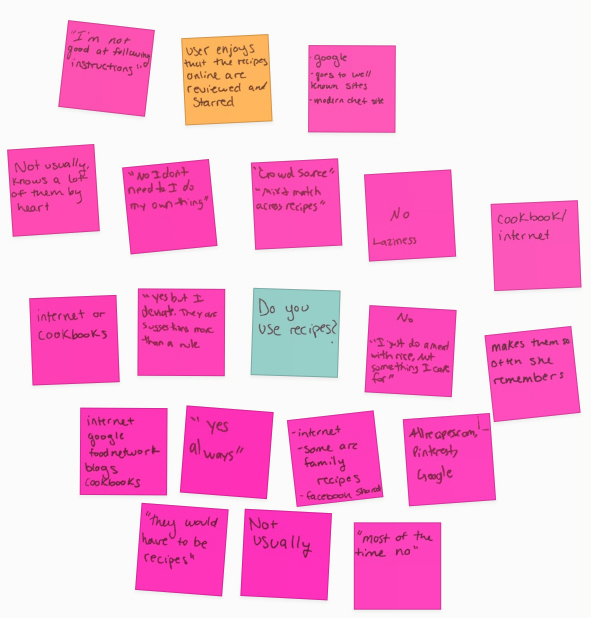 "I'm not
good at following
instructions"
user enjoys
that the recipes
online are
reviewed and
starred
google
-goes to well
known sites
-modern chef site
Not usually,
knows a lot
of them by
heart
"No I don't
need to I do
my own thing"
"Crowd Source"
-"mix & match
across recipes"
No
Laziness
cookbook/
internet
internet or
cookbooks
"yes but I
deviate. They are
suggestions more
than a rule
Do you
use recipes?
No
"I just do a meat
with rice, but
something I care
for"
makes them so
often she
remembers
internet
google
foodnetwork
blogs
cookbooks
"yes
always"
-internet
-some are
family
recipes
-facebook shared
Allrecipes.com,
Pintrest,
Google
"they would
have to be
recipes"
Not
usually
"most of the
time no"